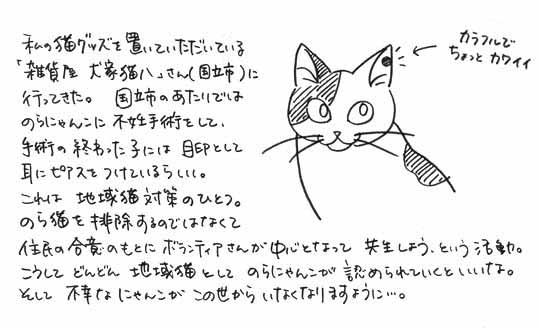 私の猫グッズを置いていただいている
「雑貨屋 犬家猫八」さん(国立市)に
行ってきた。 国立市のあたりでは
のらにゃんこに 不妊手術をして、
手術の終わった子には 目印として
耳にピアスをつけているらしい。
これは 地域猫対策のひとつ。
のら猫を排除するのではなくて
住民の合意のもとに ボランティアさんが中心となって 共生しよう、という活動。
こうして どんどん 地域猫として のらにゃんこが 認められていくといいな。
そして 不幸なにゃんこが この世から いなくなりますように…。
カラフルで
ちょっと カワイイ